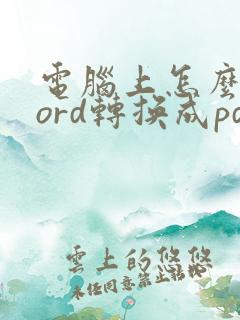 電腦上怎麼
ord轉換成pd
雲上的悠悠
未经同意禁止搬运